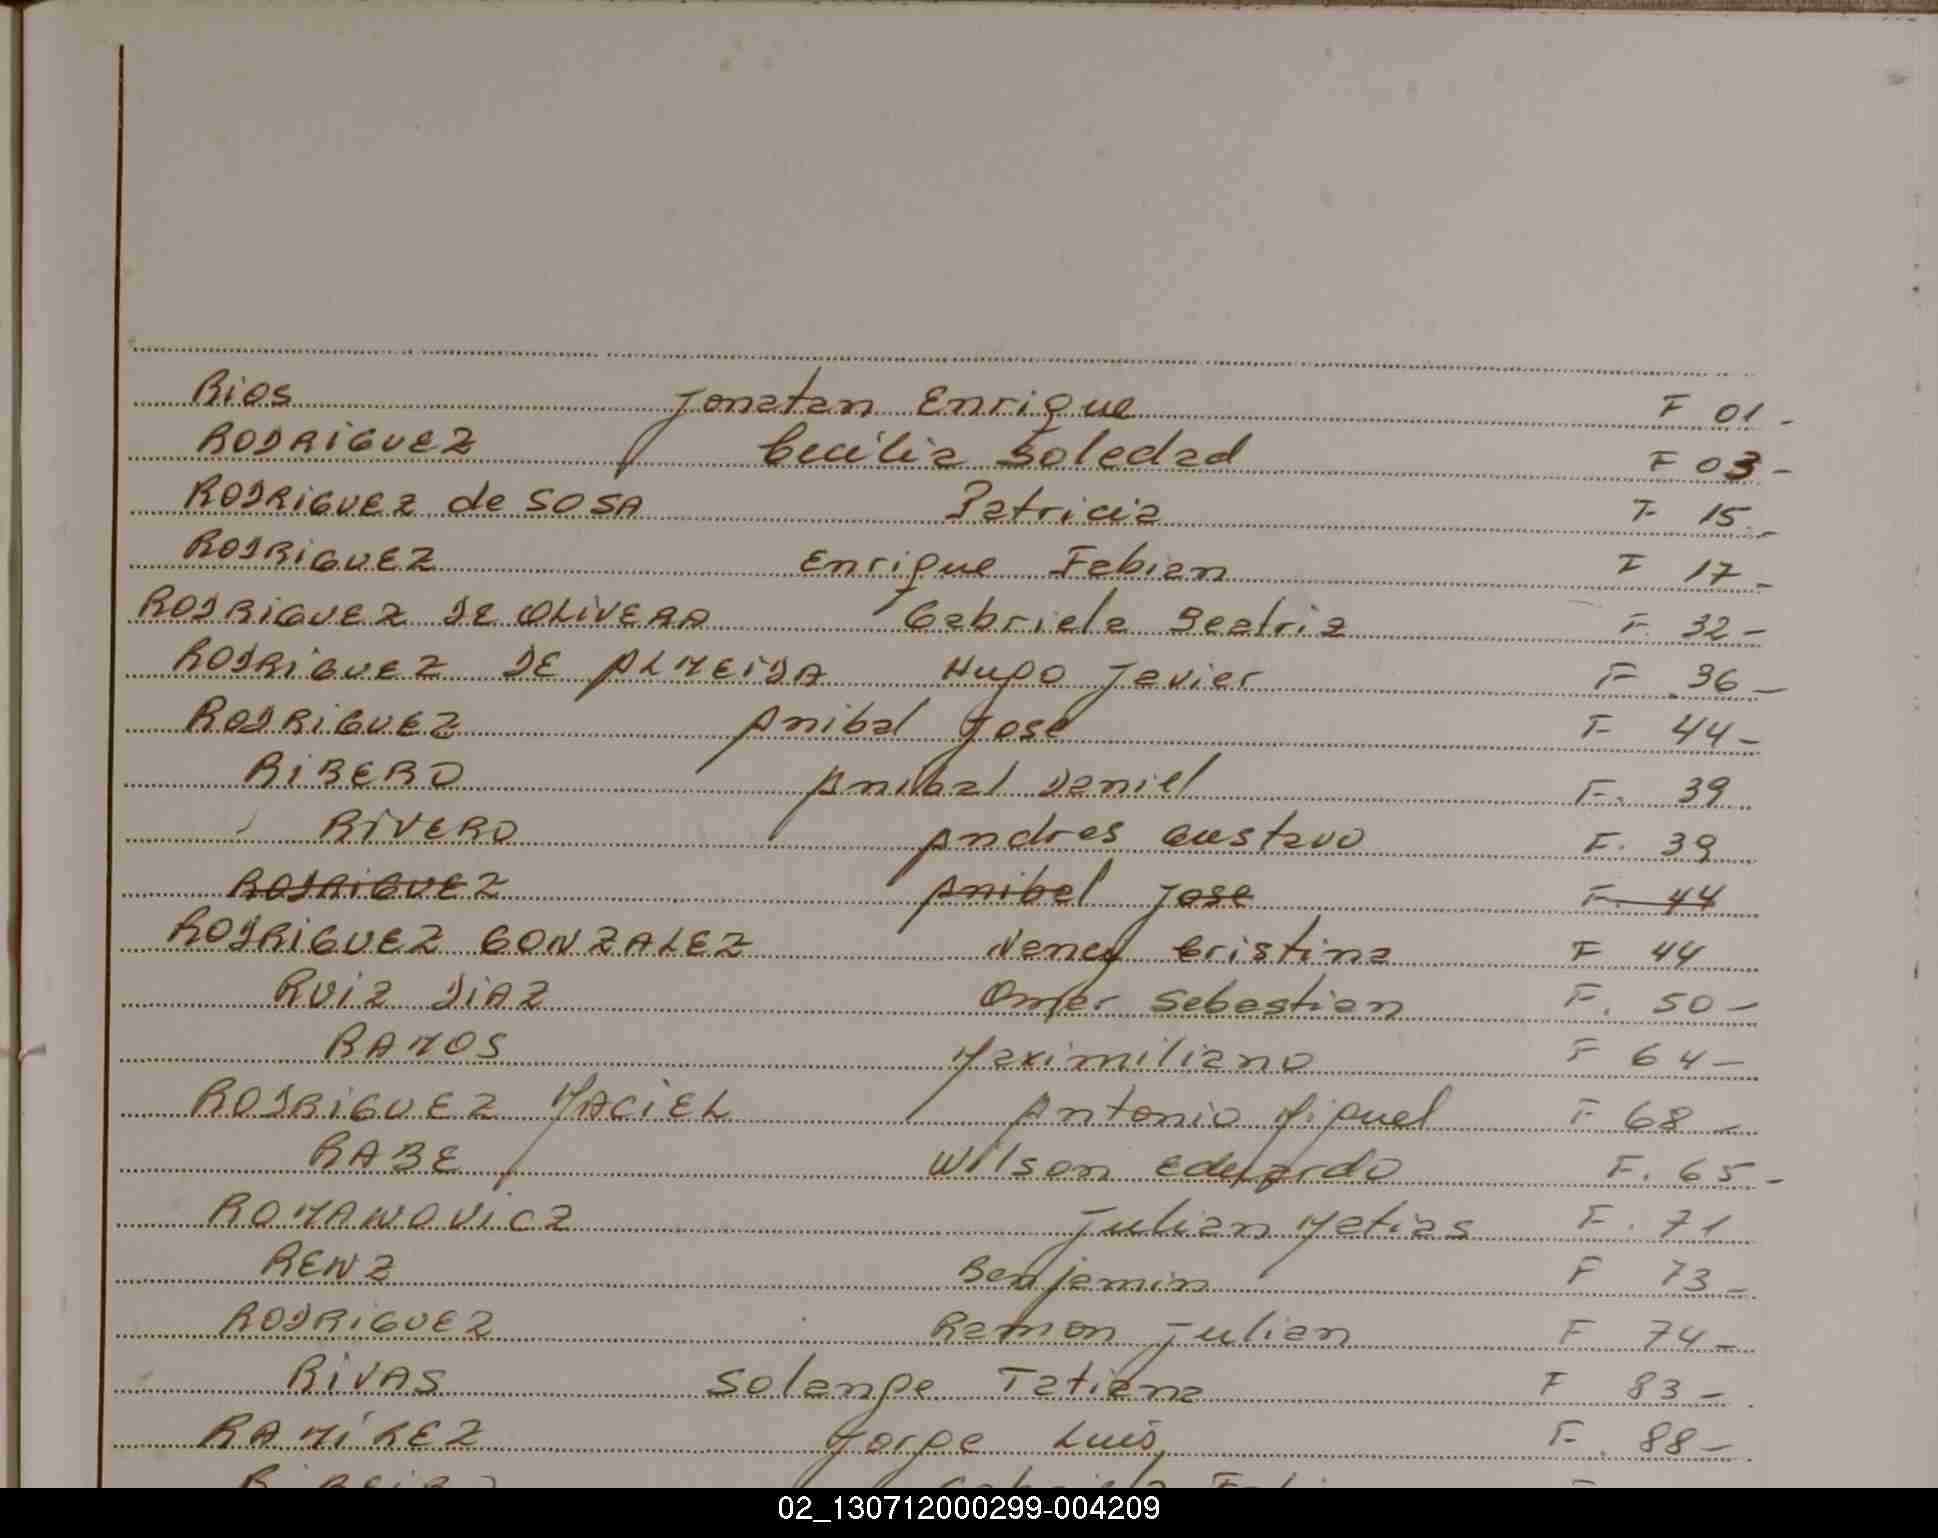 RiOS Jonatan Enrique F 01 -
RODRiGUEZ Cecilia Soledad F 03 -
RODRiGUEZ de SOSA Patricia F 15 -
RODRiGUEZ Enrique Fabian F 17 -
RODRiGUEZ DE OLiVERA Gabriela Beatriz F. 32 -
RODRiGUEZ DE ALMEiDA Hugo Javier F 36 -
RODRiGUEZ Anibal Jose F 44 -
RiBERO Anibal Daniel F. 39
RiVERO Andres Gustavo F. 39
RODRiGUEZ Anibal Jose F. 44
RODRiGUEZ GONZALEZ Nancy Cristina F 44
RUiZ DiAZ Omar Sebastian F. 50 -
RAMOS Maximiliano F 64 -
RODRiGUEZ MACiEL Antonio Miguel F 68 -
RABE Wilson Eduardo F. 65 -
ROMANOViCZ Julian Matias F. 71
RENZ Benjamin F 73 -
RODRiGUEZ Ramon Julian F 74 -
RiVAS Solange Tatiana F 83 -
RAMíREZ Jorge Luis F. 88 -
02_130712000299-004209